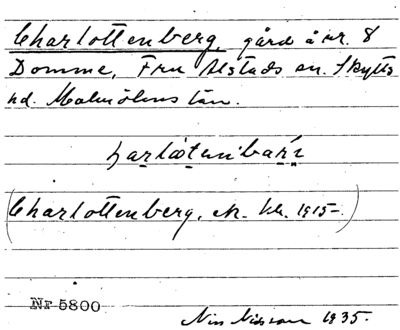 Charlottenberg, gård å nr. 8
Domme, Fru Alstads sn. Skytts
hd. Malmöhus län.
(Charlottenberg, ek. kb. 1915-.)
Nr 5800
Nils Nilsson 1935.